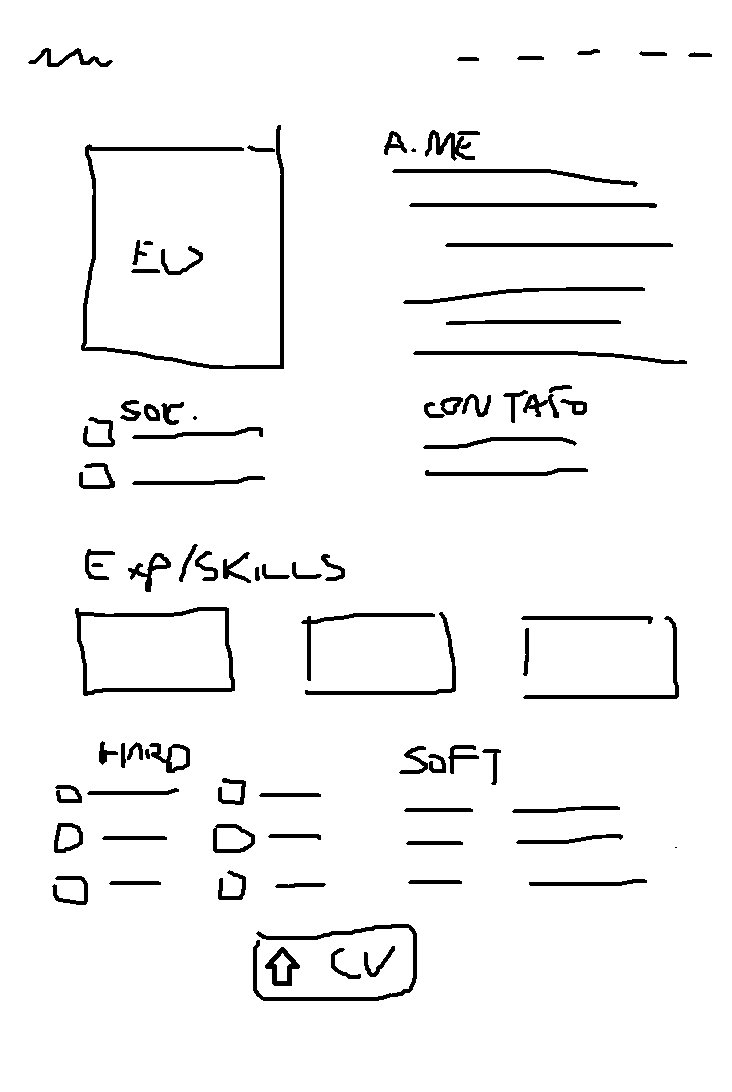 A.ME
EU
SOC.
CONTATO
EXP/SKILLS
HARD
SOFT
CV